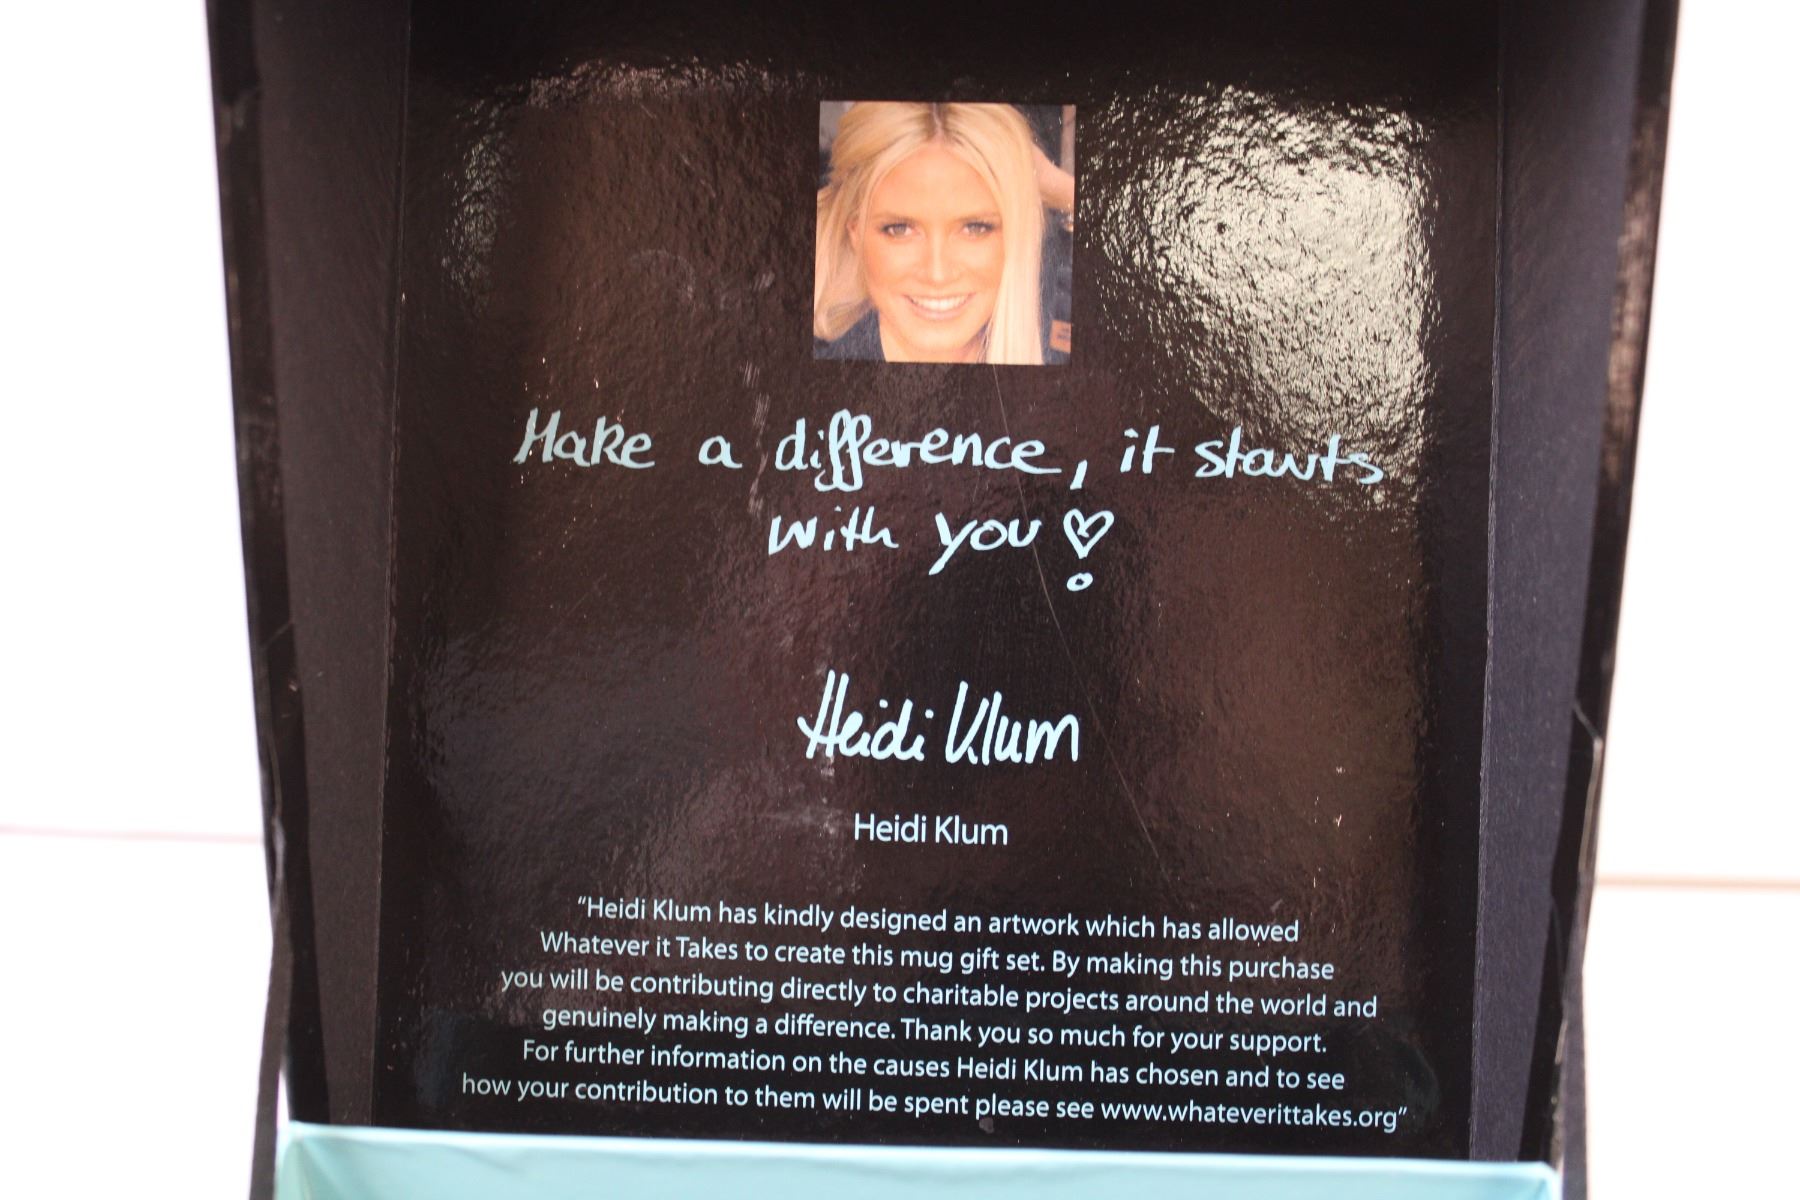 Make a difference, it starts
with you
Heidi Klum
Heidi Klum
“Heidi Klum has kindly designed an artwork which has allowed
Whatever it Takes to create this mug gift set. By making this purchase
you will be contributing directly to charitable projects around the world and
genuinely making a difference. Thank you so much for your support.
For further information on the causes Heidi Klum has chosen and to see
how your contribution to them will be spent please see www.whateverittakes.org”